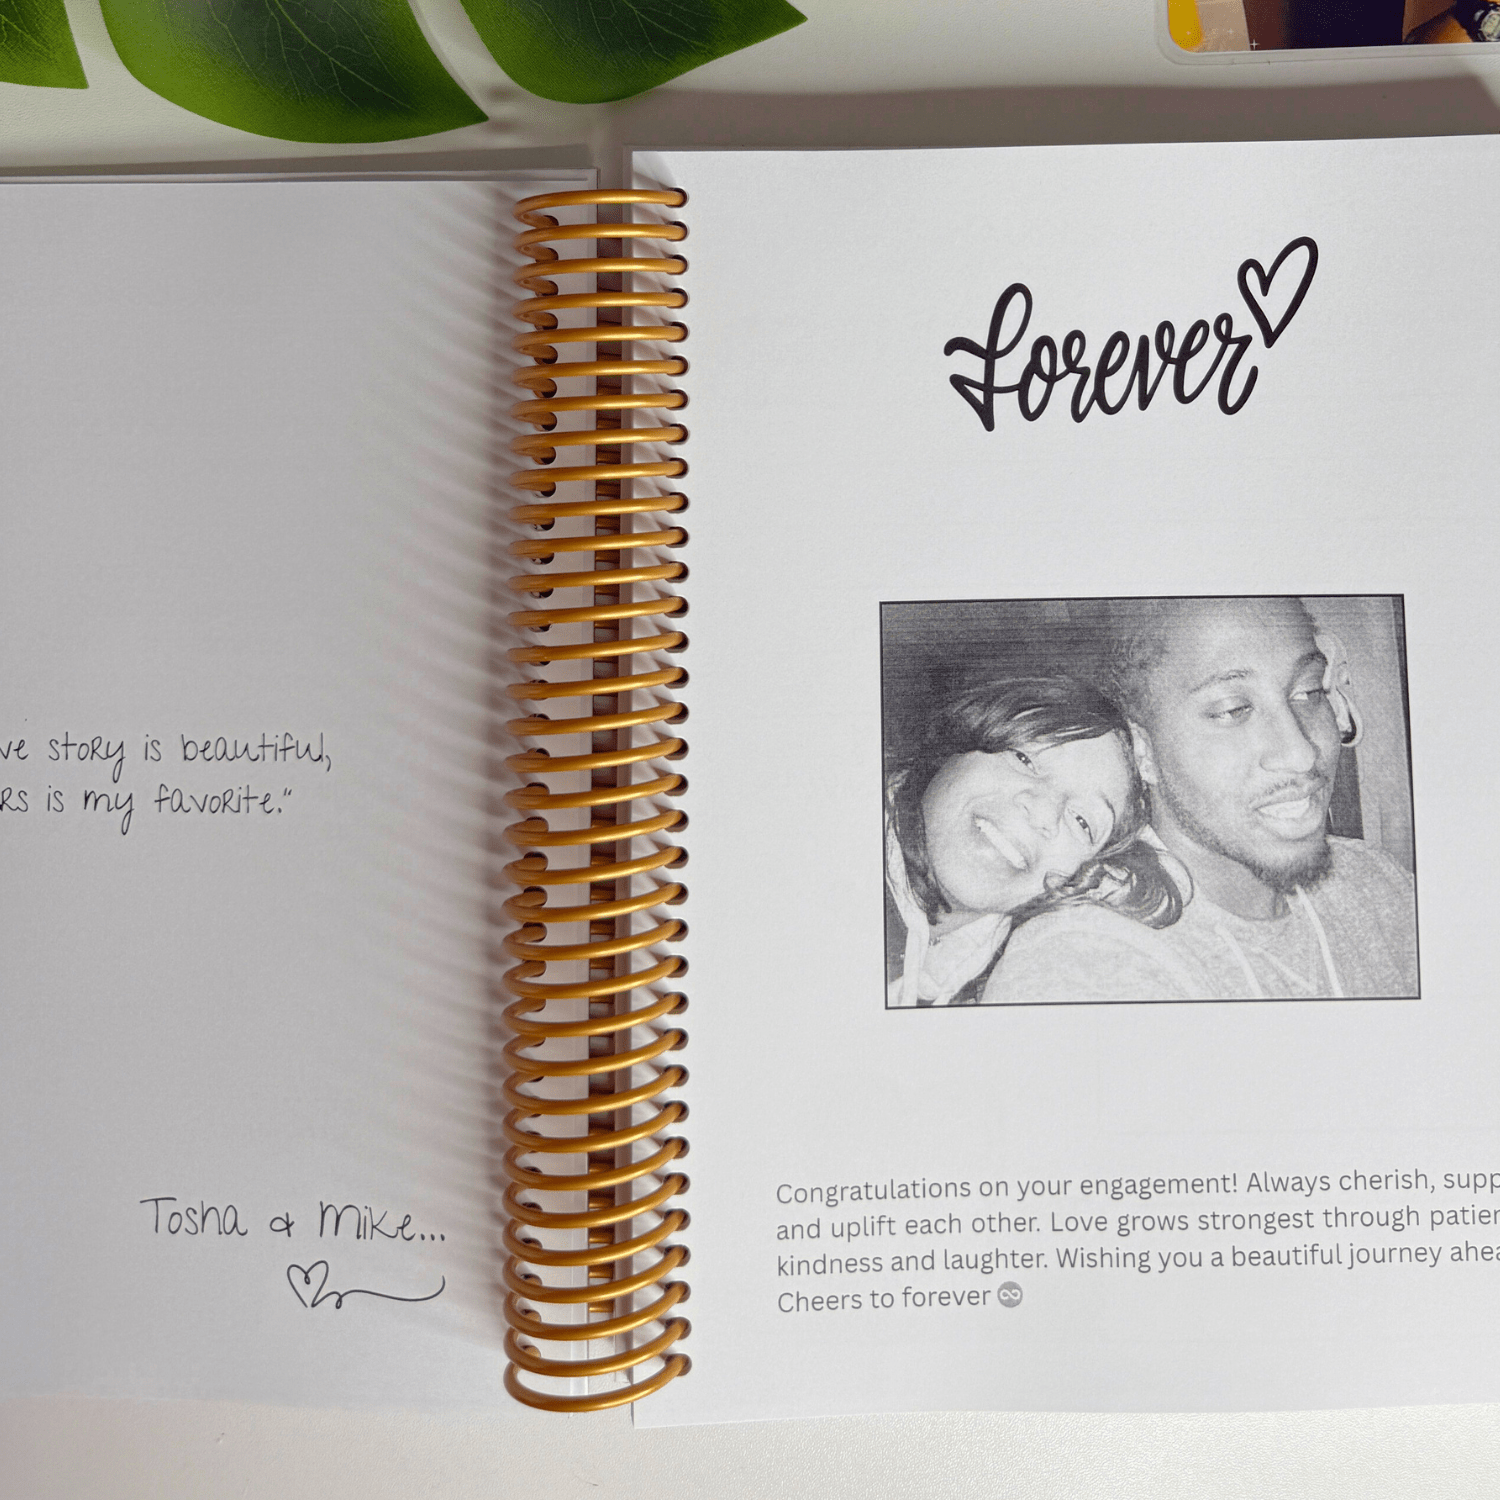 ve story is beautiful,
rs is my favorite."
Tosha & Mike...
Forever
Congratulations on your engagement! Always cherish, supp
and uplift each other. Love grows strongest through patien
kindness and laughter. Wishing you a beautiful journey ahea
Cheers to forever ♾